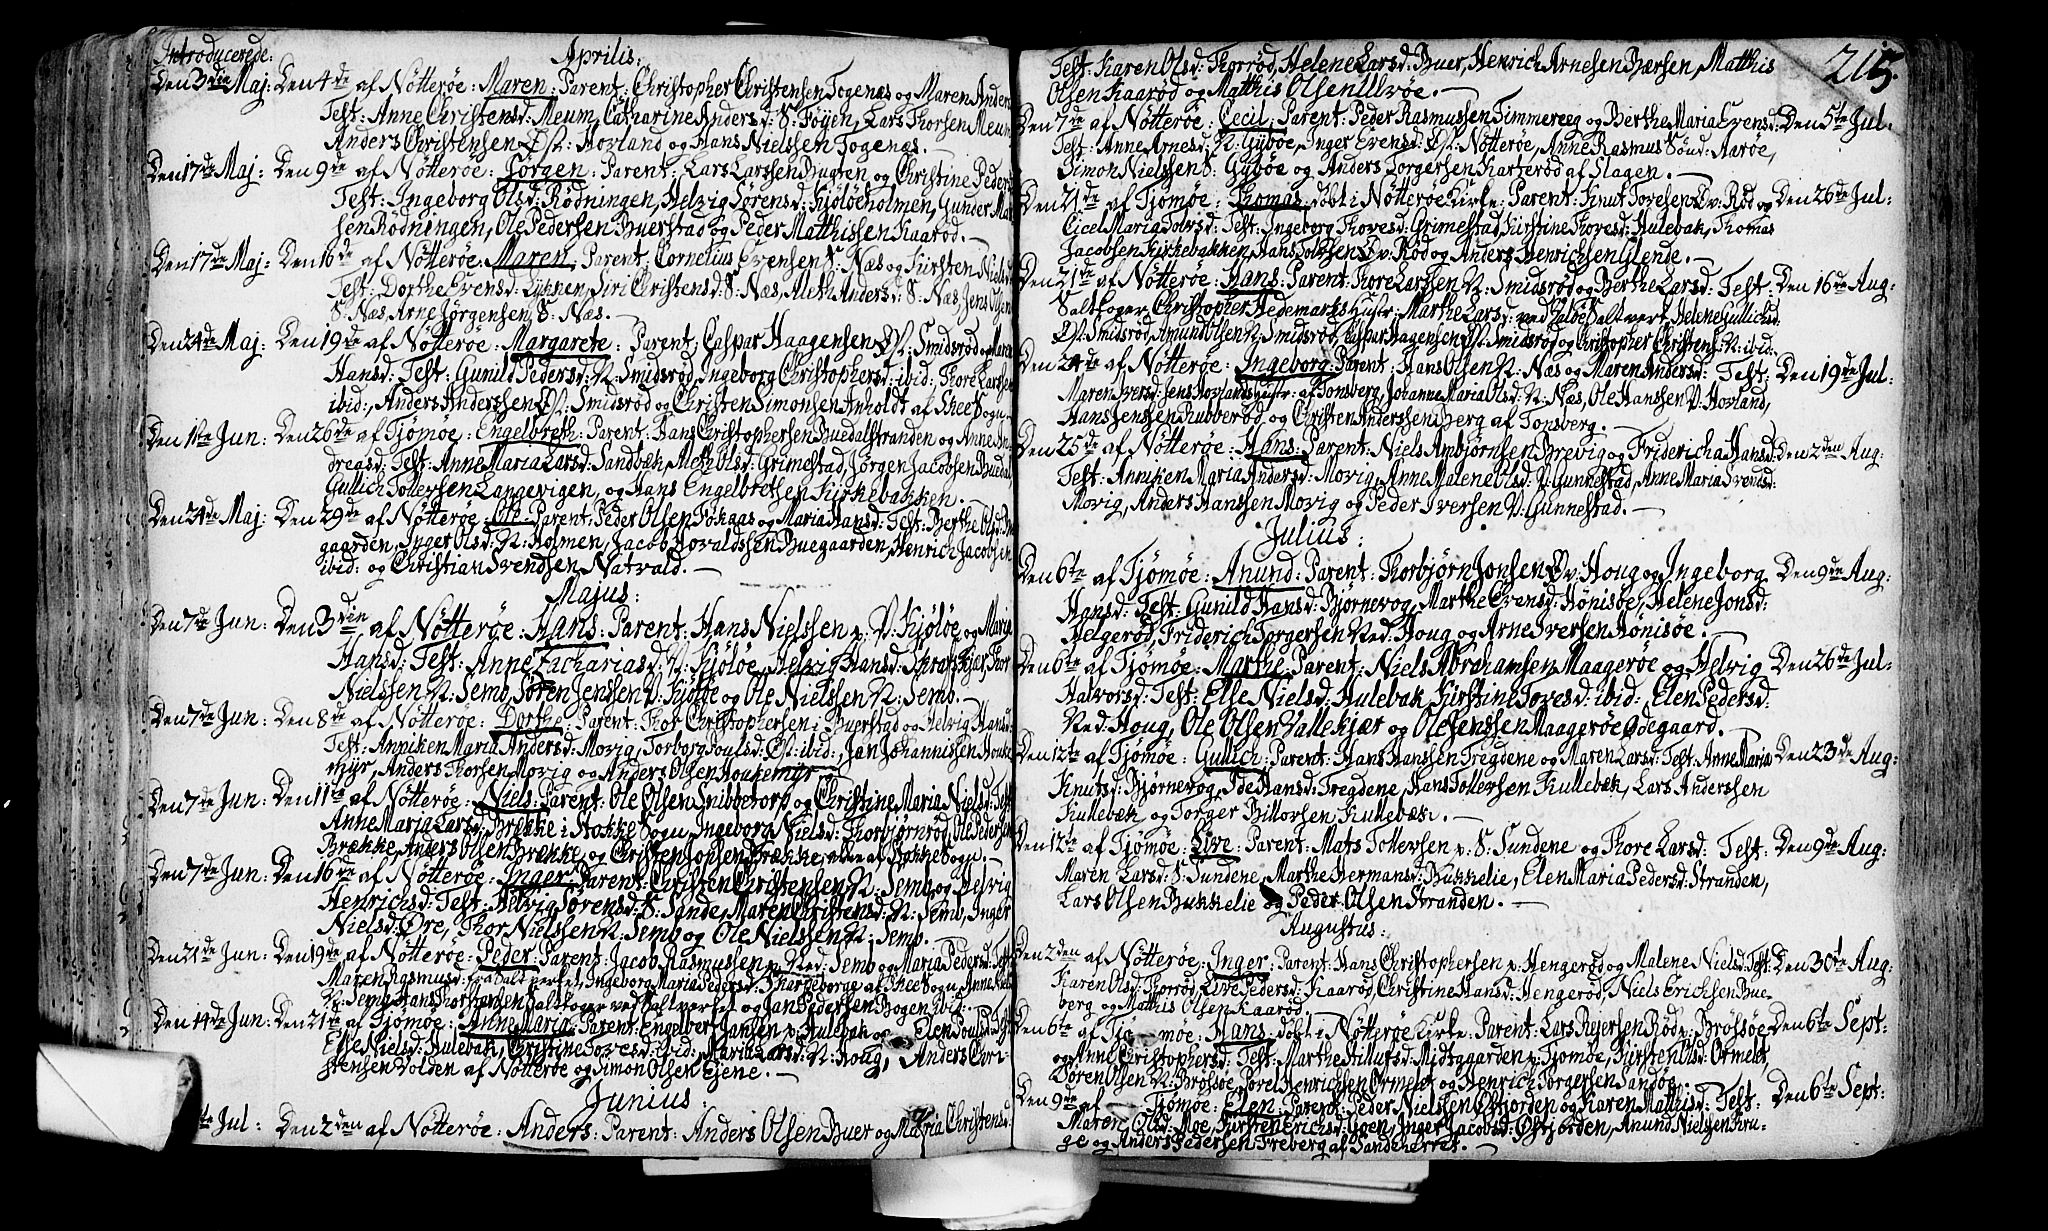 Introducerede: Aprilis:
Den 3die Maj: Den 4de af Nøtterøe: Maren: Parent: Christopher Christensen Togenæs og Maren Anders
Test: Anne Christensd: Meum, Catharine Andersd: S: Føyen, Lars Thorsen Meum
Anders Christensen Hovland og Hans Nielssen Togenæs. —
Den 17de Maj: Den 9de af Nøtterøe: Jørgen: Parent: Lars Larssen Bugten og Christine Peders
Test: Ingeborg Olsd: Rødningen, Helvig Sørensd: Kjøløeholmen, Gunder
sen Rødningen, Ole Pedersen Buerstad og Peder Matthissen Kaarød. —
Den 17de Maj: Den 16de af Nøtterøe: Maren: Parent: Cornelius Evensen S: Næs og Kirsten Nielsd
Test: Dorthe Evensd: Siri Christensd: S: Næs, Aleth Andersd: S: Næs, Jens Olsen
S: Næs, Arne Jørgensen S: Næs. —
Den 24de Maj: Den 19de af Nøtterøe: Margarete: Parent: Caspar Haagensen Smidsrød og Maren
Hansd: Test: Gunild Pedersd: N: Smidsrød, Ingeborg Christophersd: ibid: Thore Larssen
ibid:, Anders Anderssen Smidsrød og Christen Simonsen Anholdt af Skee Sogn.
Den 1ste Jun: Den 26de af Tjømøe: Engelbreth: Parent: Hans Christophersen Buedalstranden og Anne An-
dreasd: Test: Anne Maria Larsd: Sandbæk, Mette Olsd: Grimestad, Jørgen Jacobsen Buedal
Gullich Tollefsen Langevigen, og Hans Engelbrethsen Kirkebakken. —
Den 24de Maj: Den 29de af Nøtterøe: Ole: Parent: Peder Olsen Føkaas og Maria Hansd: Test: Berthe Olsd: Bue
gaarden, Inger Olsd: N: Holmen, Jacob Hovaldssen Buegaarden, Henrich Jacobsen
ibid: og Christian Svendsen Natvald. —
Majus:
Den 7de Jun: Den 3dien af Nøtterøe: Hans: Parent: Hans Nielssen p: V: Kjøløe og Maria
Hansd: Test: Anne Zachariasd: V: Kjøløe, Helvig Hansd: Thor
Nielssen N: Semb, Søren Jenssen V: Kjøløe og Ole Nielssen N: Semb. —
Den 7de Jun: Den 8de af Nøtterøe: Dorthe: Parent: Thor Christophersen Buerstad og Helvig Hansd:
Test: Anniken Maria Andersd: Movig, Torborg Poulsd: ibid: Jan Johannissen Houke
myr, Anders Thorsen Movig og Anders Olsen Houkemyr. —
Den 7de Jun: Den 11te af Nøtterøe: Niels: Parent: Ole Olsen Snibbetorp og Christine Maria Nielsd: Test:
Anne Maria Larsd: Brekke i Stokke Sogn, Ingeborg Nielsd: Thorbjørnrød, Ole Pedersen
Brække, Anders Olsen Brække og Christen Brække, alle af Stokke Sogn. —
Den 7de Jun: Den 16de af Nøtterøe: Inger: Parent: Christen Christensen N: Semb og Helvig
Henrichsd: Test: Helvig Sørensd: S: Sande, Maren Christensd: N: Semb, Inger
Nielsd: Øre, Thor Nielssen N: Semb og Ole Nielssen N: Semb. —
Den 21de Jun: Den 19de af Nøtterøe: Peder: Parent: Jacob Rasmussen p: Ned: Semb og Maria Pedersd: Test:
Maren Rasmusd: Saltverket, Ingeborg Maria Pedersd: af Skee Sogn, Anne
N: Semb, Hans Saltfoger ved Saltverket og Jan Pedersen Bogen ibid: —
Den 14de Jun: Den 21de af Tjømøe: Anne Maria: Parent: Engelbret Jansen p: Hulebak og Elen Poulsd: Test:
Else Nielsd: Hulebak, Christine Tovesd: ibid:, Maria Larsd: N: Houg, Anders Chri-
stensen Volden af Nøtterøe og Simon Olsen Ejene. —
Junius:
te Jul: Den 2den af Nøtterøe: Anders: Parent: Anders Olsen Buer og Maria Christensd:
215.
Test: Karen Olsd: Thorrød, Helene Larsd: Buer, Henrich Arnesen Bærsen, Matthis
Olsen Kaarød og Matthis Olsen Ulvøe. —
Den 7de af Nøtterøe: Cecil: Parent: Peder Rasmussen Simmereeg og Berthe Maria Evensd: Den 5te Jul:
Test: Anne Arnesd: N: Gybøe, Inger Evensd: Nøtterøe, Anne Rasmus Sønd: Aarøe,
Simon Nielssen S: Gybøe og Anders Torgersen Karterød af Slagen. —
Den 21de af Tjømøe: Thomas, døbt i Nøtterøe Kirke: Parent: Knut Tovesen Øv: Rød og Den 26de Jul:
Cicel Maria Tolvsd: Test: Ingeborg Thovesd: Grimestad, Kirstine Thovesd: Hulebak, Thomas
Jacobsen Kirkebakken, Hans Øv: Rød og Anders Henrichsen Glende. —
Den 21de af Nøtterøe: Hans: Parent: Thore Larssen N: Smidsrød og Berthe Larsd: Test: Den 16de Aug:
Saltfoger Christopher Hedemarks Hustr: Marthe Larsd: ved Valøe Saltverk, Helene Gullichsd:
Smidsrød, Amund Olsen N: Smidsrød, Caspar Haagensen Smidsrød og Christopher Christens: N: ibid:
Den 24de af Nøtterøe: Ingeborg: Parent: Hans Olsen N: Næs og Maren Andersd: Test: Den 19de Jul:
Maren Iversd: Jens Hovlands Hustr: af Tonsberg, Johanne Maria Olsd: N: Næs, Ole Hanssen V: Hovland,
Hans Jenssen Bubberød og Christen Anderssen Berg af Tonsberg. —
Den 25de af Nøtterøe: Hans: Parent: Niels Ambjørnsen Brevig og Friderica Hansd: Den 2den Aug:
Test: Anniken Maria Andersd: Movig, Anne Malene Olsd: V: Gunnestad, Anne Maria Svendsd:
Movig, Anders Hanssen Movig og Peder Iversen V: Gunnestad. —
Julius:
Den 6te af Tjømøe: Anund: Parent: Thorbjørn Jonsen Øv: Houg og Ingeborg Den 9de Aug:
Hansd: Test: Gunild Hansd: Bjørnevog, Marthe Evensd: Hønisøe, Helene Jonsd:
Helgerød, Friderich Torgersen Ned: Houg og Arne Iversen Hønisøe. —
Den 6te af Tjømøe: Marthe: Parent: Niels Abrahamsen Maagerøe og Helvig Den 26de Jul:
Halvorsd: Test: Else Nielsd: Hulebak, Kirstine Tovesd: ibid: Elen Pedersd:
Ned: Houg, Ole Olsen Vallekjær og Ole Jenssen Maagerøe Ødegaard. —
Den 12te af Tjømøe: Gullich: Parent: Hans Hanssen Tregdene og Maren Larsd: Test: Anne Maria Den 23de Aug:
Knutsd: Bjørnevog, Ide Hansd: Tregdene, Hans Tollefsen Kullebæk, Lars Anderssen
Kullebæk og Torger Kullebæk. —
Den 12te af Tjømøe: Live: Parent: Mats Tollefsen p: S: Sundene og Thore Larsd: Test: Den 9de Aug:
Maren Larsd: S: Sundene, Marthe Hermansd: Bukkelie, Elen Maria Pedersd: Stranden,
Lars Olsen Bukkelie og Peder Olsen Stranden. —
Augustus:
Den 2den af Nøtterøe: Inger: Parent: Hans Christophersen p: Hengerød og Malene Nielsd: Test: Den 30te Aug:
Karen Olsd: Thorrød, Live Pedersd: Kaarød, Christine Hansd: Hengerød, Niels Erichsen Bue-
berg og Matthis Olsen Kaarød. —
Den 6te af Tjømøe: Hans, døbt i Nøtterøe Kirke: Parent: Lars Rejersen Røde p: Brøtsøe Den 6te Sept:
og Anne Christophersd: Test: Marthe Hellufsd: Midtgaarden p: Tjømøe, Kirsten Olsd: Ormelt,
Søren Olsen N: Brøtsøe, Povel Henrichsen Ormelt og Henrich Torgersen Sandøe. —
Den 9de af Tjømøe: Elen: Parent: Peder Nielssen Østjorden og Karen Matthisd: Test: Den 6te Sept:
Maren Olsd: Moe, Kirsten Erichsd: Goen, Inger Jacobsd: Østjorden, Anund Nielssen Kru-
ge og Anders Pedersen Freberg af Sandeherret. —